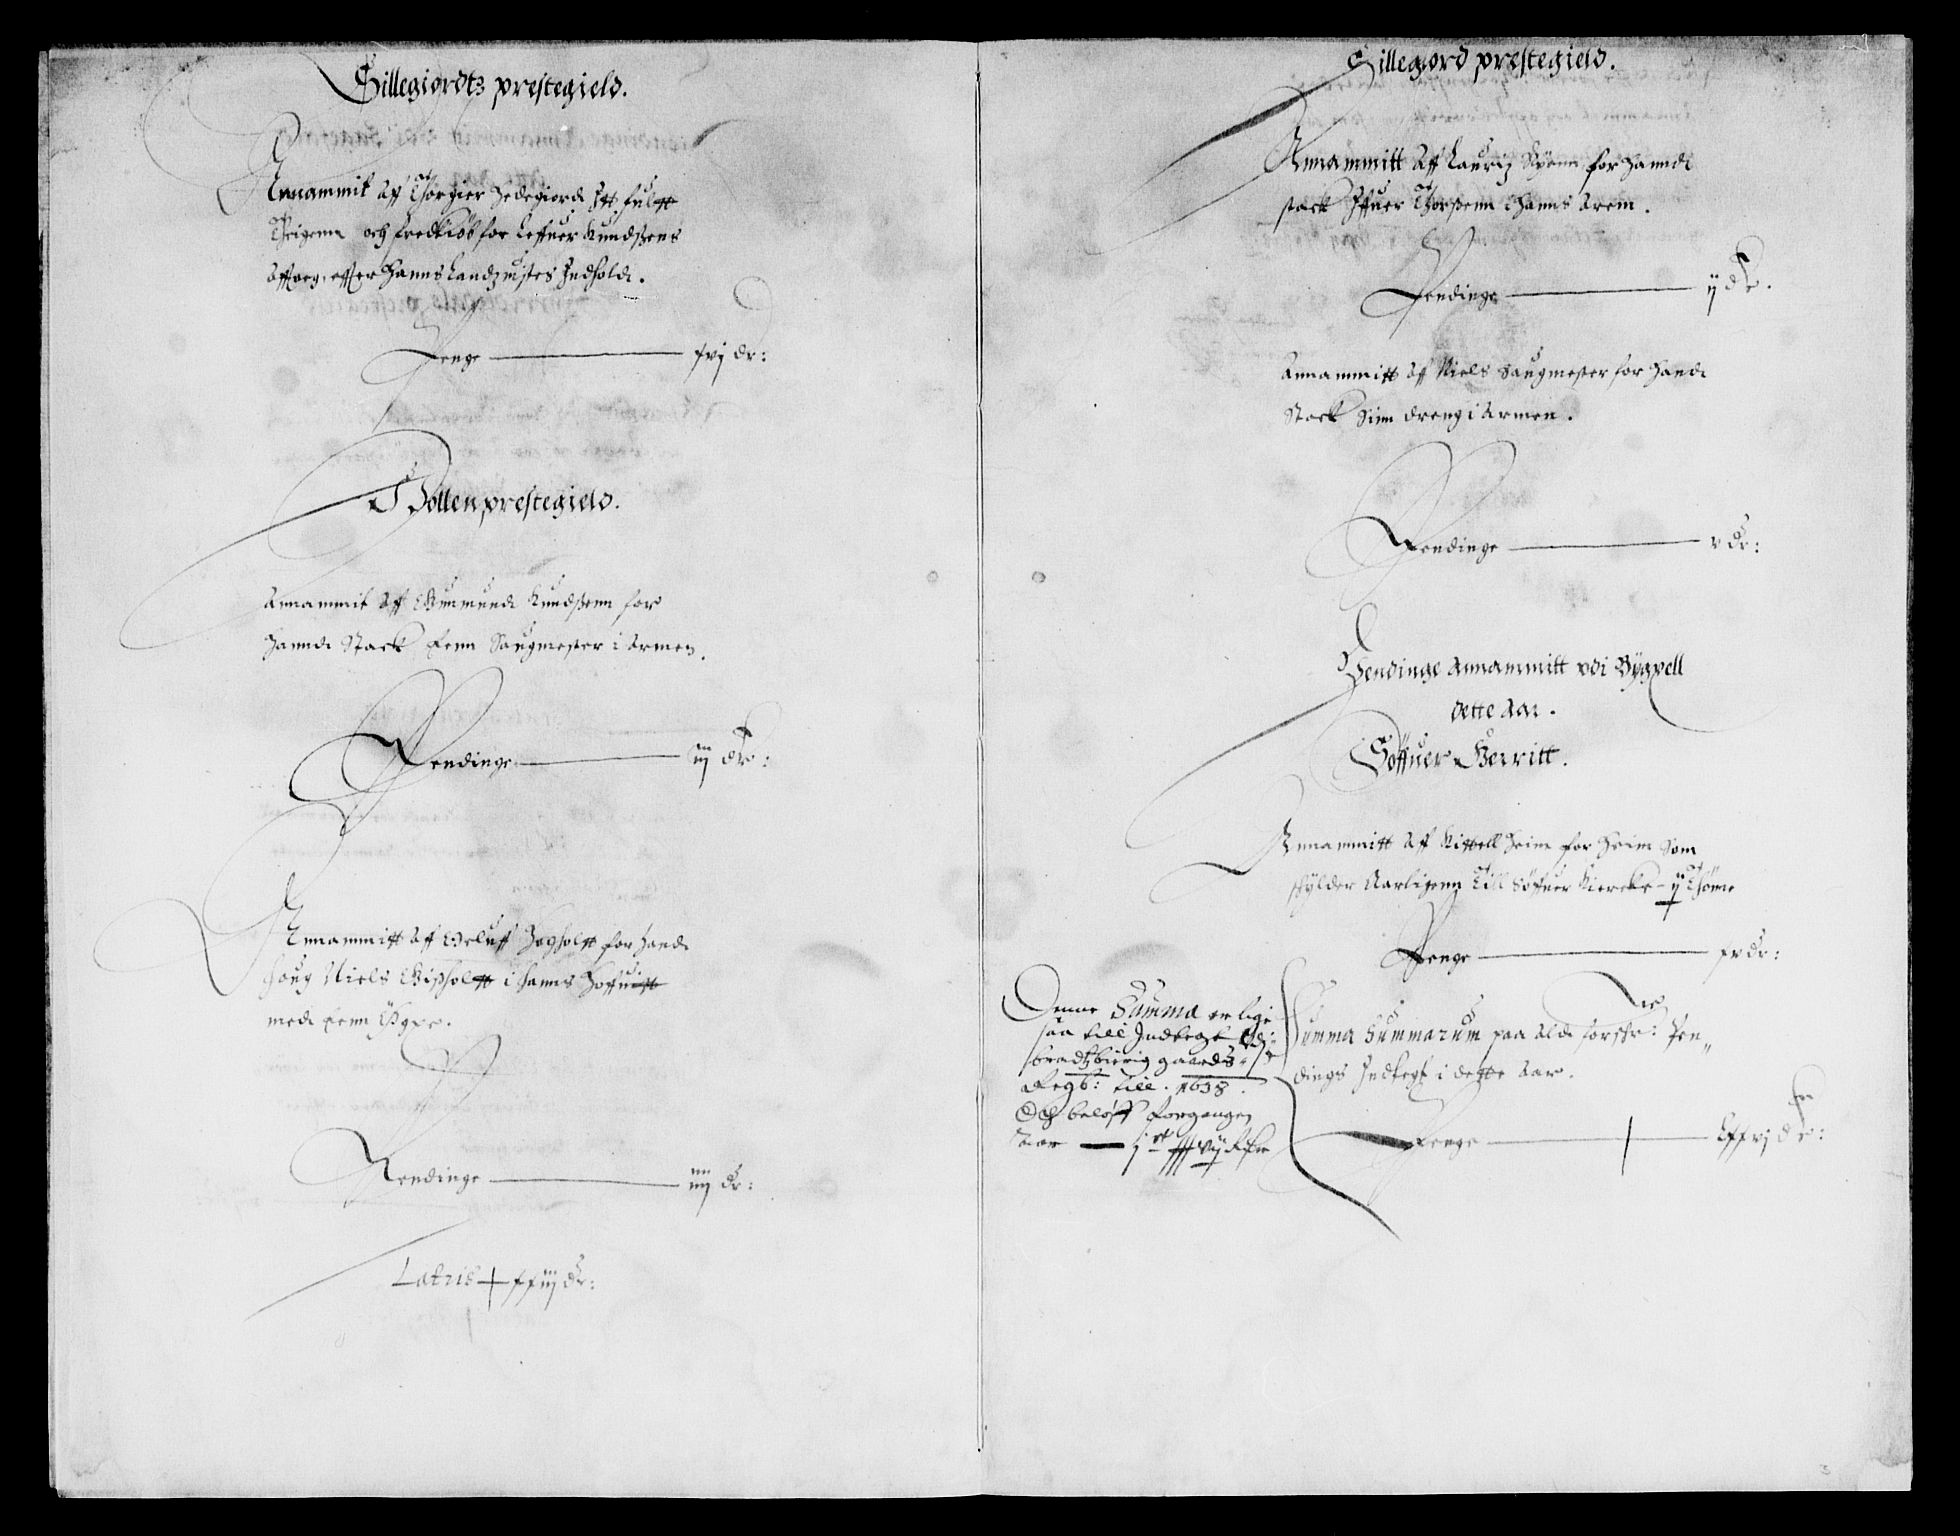 Hillegiordtz prestegield.
Annammit Aff Thorgier Hedegiorde Itt fultt
Thigenn och fredkiøb for Leffuer Kundsens
Affoeg, effter Hanns Landzuistes Indhold.
Penge — xvj dr:
Bollen prestegield.
Annammit Aff Gunmund Kundsenn for
Hannd Stack Fenn Saugmester i Armen.
Penndinge — iiij dr:
Annammitt Aff Oeluff Hogholtt for hand
houg Niels Gisholtt i hanns Hoffuitt
med Fenn Øgxe.
Pendinge — iiij dr:
Lateris xxiiij dr:
Hillegiord prestegield.
Annammitt Aff Lauriz Skøenn for Hannd
stack Iffuer Thorsenn i hanns Arem.
Pendinge — ij dr.
Annammitt Aff Niels Saugmester for Hand
Stack Sinn dreng i Armen.
Pendinge — v dr:
Pendinge Annammitt vdi Bygxell
dette Aar.
Søffuer Herritt.
Annammitt Aff Kittell Heim for Heim Som
skylder Aarligenn Till Søffuer Kiercke - ij Thønne
Penge — xv dr:
Summa Summarum paa Alde forschr: Pen„
dings Indtegt i dette Aar.
Penge — Lxxvj dr:
Denne Summa er lige
saa till Indtegt vdi
bradtzbierig gaards
Regsb: till. 1638.
Och beløff forgangen
Aar